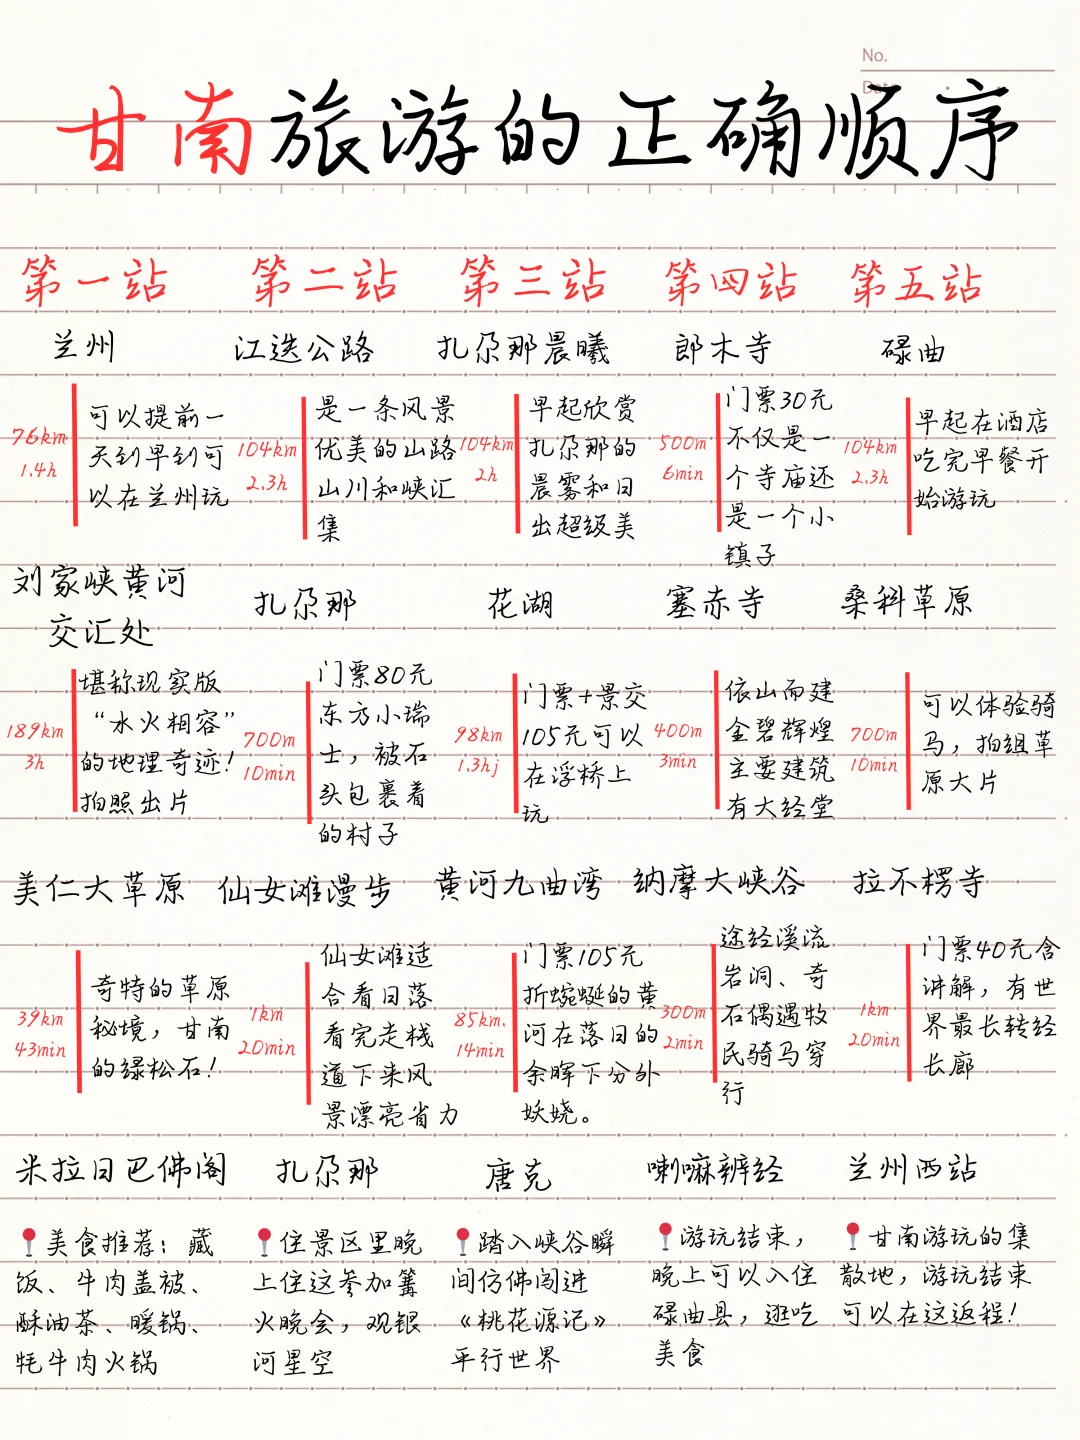 No.
Date
甘南旅游的正确顺序
第一站
兰州
76km
1.4h
可以提前一
天到早到可
以在兰州玩
刘家峡黄河
交汇处
189km
3h
堪称现实版
“水火相容”
的地理奇迹!
拍照出片
美仁大草原
39km
43min
奇特的草原
秘境,甘南
的绿松石!
米拉日巴佛阁
📍美食推荐:藏
饭、牛肉盖被、
酥油茶、暖锅、
牦牛肉火锅
第二站
江迭公路
104km
2.3h
是一条风景
优美的山路
山川和峡汇
集
扎尕那
700m
10min
门票80元
东方小瑞
士,被石
头包裹着
的村子
仙女滩漫步
1km
20min
仙女滩适
合看日落
看完走栈
道下来风
景漂亮省力
扎尕那
📍住景区里晚
上住这参加篝
火晚会,观银
河星空
第三站
扎尕那晨曦
104km
2h
早起欣赏
扎尕那的
晨雾和日
出超级美
花湖
98km
1.3hj
门票+景交
105元可以
在浮桥上
玩
黄河九曲湾
85km.
14min
门票105元
折蜿蜒的黄
河在落日的
余晖下分外
妖娆。
唐克
📍踏入峡谷瞬
间仿佛闯进
《桃花源记》
平行世界
第四站
郎木寺
500m
6min
门票30元
不仅是一
个寺庙还
是一个小
镇子
塞赤寺
400m
3min
依山而建
金碧辉煌
主要建筑
有大经堂
纳摩大峡谷
300m
2min
途经溪流
岩洞、奇
石偶遇牧
民骑马穿
行
喇嘛辨经
📍游玩结束,
晚上可以入住
碌曲县,逛吃
美食
第五站
碌曲
104km
2.3h
早起在酒店
吃完早餐开
始游玩
桑科草原
700m
10min
可以体验骑
马,拍组草
原大片
拉不楞寺
1km
20min
门票40元含
讲解,有世
界最长转经
长廊
兰州西站
📍甘南游玩的集
散地,游玩结束
可以在这返程!